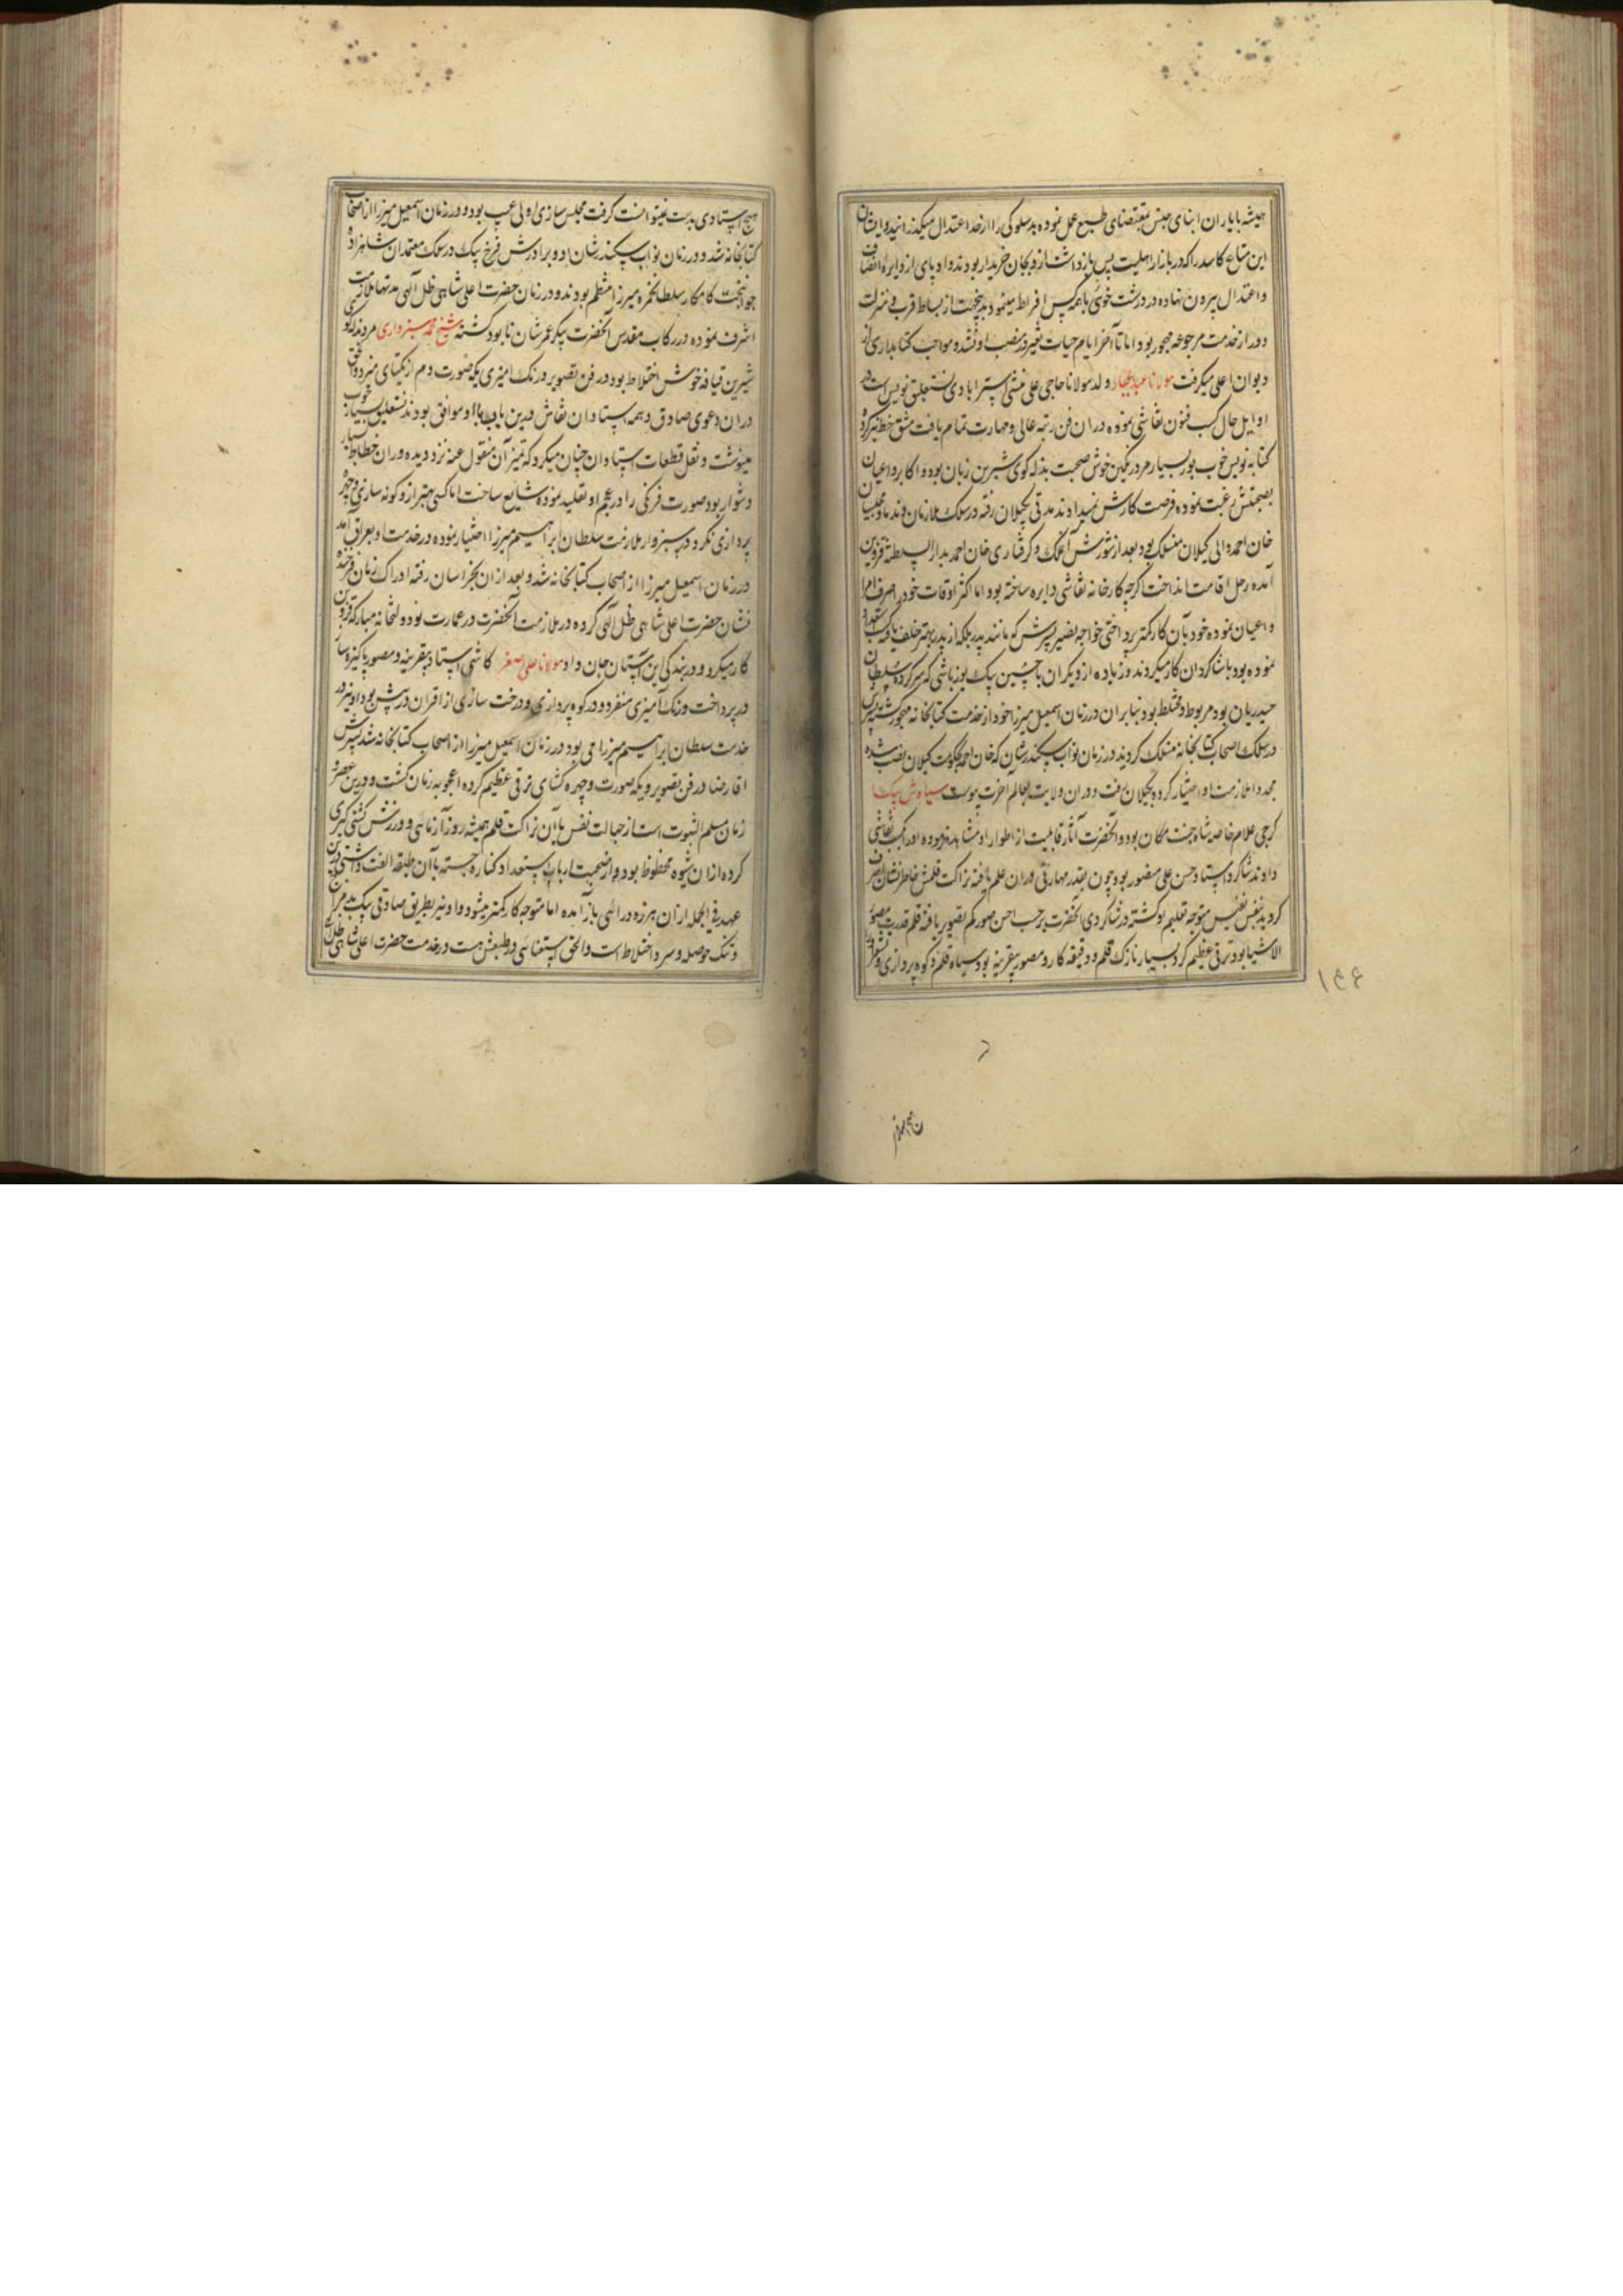 همیشه با یاران ابنای جنس بمقتضای طبع عمل نموده بدسلوکی را از حد اعتدال میگذرانید و ایشان
این متاع کاسد را که در بازار اهلیت پس باز داشت ازو بجان خریدار بودند و او پای از دایره انصاف
و اعتدال بیرون نهاده در درشت خوئی با همه کس افراط مینمود بدینجهت از بساط قرب و منزلت
دور از خدمت مرجوعه مهجور بود اما تا آخر ایام حیات تغییر در منصب او نشد و مواجب کتابداری از
دیوان اعلی میگرفت مولانا عبدالجبار ولد مولانا حاجی علی منشی استرابادی نستعلیق نویس است در
اوایل حال کسب فنون نقاشی نموده در آن فن رتبه عالی و مهارت تمام یافت مشق خط نیز کرده
کتابه نویس خوب بود بسیار مرد رنگین خوش صحبت بذله کوی شیرین زبان بوده و اکابر و اعیان
بصحبتش رغبت نموده فرصت کارش نمیدادند مدتی بگیلان رفته در سلک ملازمان و ندما و مجلسیان
خان احمد والی کیلان منسلک بود بعد از شورش آن ملک و گرفتاری خان احمد بدارالسلطنه قزوین
آمده رحل اقامت انداخت اگرچه کارخانه نقاشی دایره ساخته بود اما اکثر اوقات خود را صرف امرا
و اعیان نموده خود بآن کار کمتر پرداختی خواجه نصیر پسرش که مانند پدر بلکه از پدر بهتر خلف یافته کسب
نموده بود با شاگردان کار میکردند و زیاده از دیگران با حسین بیک یوزباشی که سرکرده سلطان
حیدریان بود مربوط و مختلط بود بنابران در زمان اسمعیل میرزا خود از خدمت کتابخانه مهجور شد پسرش
در سلک اصحاب کتابخانه منسلک گردید در زمان نواب سکندرشان که خان احمد بحکومت کیلان نصب شده
مجددا ملازمت او اختیار کرده بگیلان رفت و در آن ولایت بعالم آخرت پیوست سیاوش بیک
کرجی غلام خاصه شاه جنت مکان بود و آنحضرت آثار قابلیت از اطوار او مشاهده فرموده او را بکسب نقاشی
دادند شاگرد استاد حسن علی مصور بود چون بقدر مهارتی در آن علم یافته نزاکت قلمش خاطرنشان اشرف
گردید بنفس نفیس متوجه تعلیم او گشته در شاگردی آنحضرت برحسب احسن صورکم تصویر یافته قلم قدرت مصور
الاشیا بود ترقی عظیم کرد بسیار نازک قلم و دقیقه کار و مصور بیقرینه بود سیاه قلم و کوه پردازی و
۱۴۶
هیچ استادی بدست نیتوانست گرفت مجلس سازی اولی عیب بود و در زمان اسمعیل میرزا از اصحاب
کتابخانه شد و در زمان نواب سکندر شان او و برادرش فرخ بیک در سلک معتمدان شاهزاده
جوانبخت کامکار سلطان حمزه میرزا منتظم بودند و در زمان حضرت اعلی شاهی ظل آلهی مدتها ملازمت
اشرف نموده در رکاب مقدس آنحضرت پیکر عمرشان نابود گشته شیخ محمد سبزواری مردی
شیرین قیافه خوش اختلاط بود در فن تصویر و رنگ امیزی یکه صورت دم از یکتائی میزد و الحق
در آن دعوی صادق و همه استادان نقاش درین باب با او موافق بودند نستعلیق بسیار خوب
مینوشت و نقل قطعات استادان چنان میکرد که تمیز آن منقول عنه نزد دیده وران خطاط بسیار
دشوار بود صورت فرنگی را در عجم او تقلید نموده شایع ساخت اما کسی بهتر ازو گونه سازی و چهره
پردازی نکرد در سبزوار ملازمت سلطان ابراهیم میرزا اختیار نموده در خدمت او بعراق آمد
در زمان اسمعیل میرزا از اصحاب کتابخانه شد و بعد از آن بخراسان رفته ادراک زمان فرخنده
نشان حضرت اعلی شاهی ظل آلهی کرده در ملازمت آنحضرت در عمارت نو دولتخانه مبارکه قزوین
کار میکرد و در بندگی این آستان جان داد مولانا علی اصغر کاشی استاد بیقرینه و مصور پاکیزه ساز
در پرداخت و رنگ آمیزی منفرد و در کوه پردازی و درخت سازی از اقران در پیش بود او نیز در
خدمت سلطان ابراهیم میرزا می بود در زمان اسمعیل میرزا از اصحاب کتابخانه شد پسرش
اقا رضا در فن تصویر و یکه صورت و چهره گشای ترقی عظیم کرده اعجوبه زمان گشت و درین عصر و
زمان مسلم الثبوت است از جهالت نفس با آن نزاکت قلم همیشه زور آزمائی و ورزش کشتی گیری
کرده ازان شیوه محظوظ بودی و از صحبت ارباب استعداد کناره جسته با آن طبقه الفت داشتی درین
عهد فی الجمله ازان هرزه درائی باز آمده اما متوجه کار کمتر میشود و او نیز بطریق صادقی بیک بد مزاج
و تنک حوصله و سرد اختلاط است و الحق استغنائی در طبعش هست در خدمت حضرت اعلی شاهی ظل